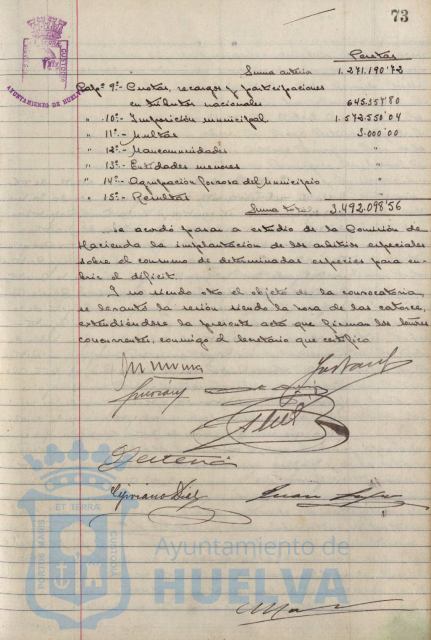 73
Pesetas
Suma anterior 1.271.190'72
Cap.º 9º.- Cuotas, recargos y participaciones
en tributos nacionales 645.357'80
" 10º.- Imposición municipal 1.572.550'04
" 11º.- Multas 3.000'00
" 12º.- Mancomunidades "
" 13º.- Entidades menores "
" 14º.- Agrupación forzosa del Municipio "
" 15º.- Resultas "
Suma total 3.492.098'56
Se acordó pasar a estudio de la Comisión de
Hacienda la implantación de los arbitrios especiales
sobre el consumo de determinadas especies para cu-
brir el déficit.
Y no siendo otro el objeto de la convocatoria,
se levantó la sesión siendo la hora de las catorce,
extendiéndose la presente acta que firman los Señores
concurrentes, conmigo el Secretario que certifico.
Cipriano Díaz
Juan
AYUNTAMIENTO DE HUELVA
PORTUS MARIS
ET TERRAE
CUSTODIA
Ayuntamiento de
HUELVA